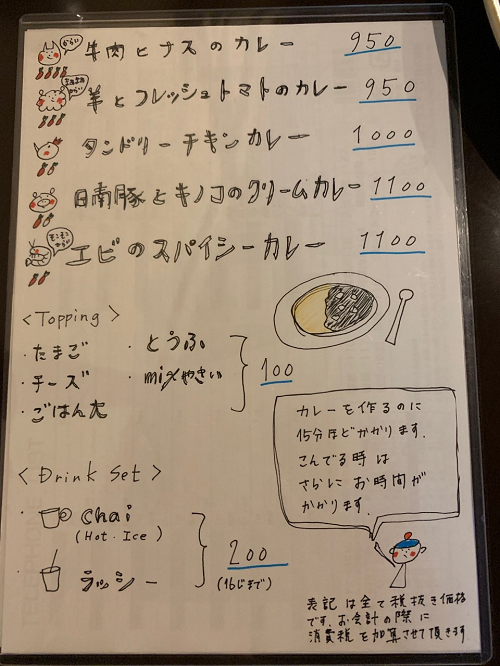 からい
牛肉とナスのカレー 950
まあまあからい
羊とフレッシュトマトのカレー 950
タンドリーチキンカレー 1000
日南豚とキノコのクリームカレー 1100
そこそこからい
エビのスパイシーカレー 1100
<Topping>
・たまご ・とうふ
・チーズ mixやさい
・ごはん大
100
カレーを作るのに
15分ほどかかります.
こんでる時は
さらにお時間が
かかります.
<Drink Set>
・Chai
(Hot・Ice)
・ラッシー
200
(16じまで)
表記は全て税抜き価格
です.お会計の際に
消費税を加算させて頂きます